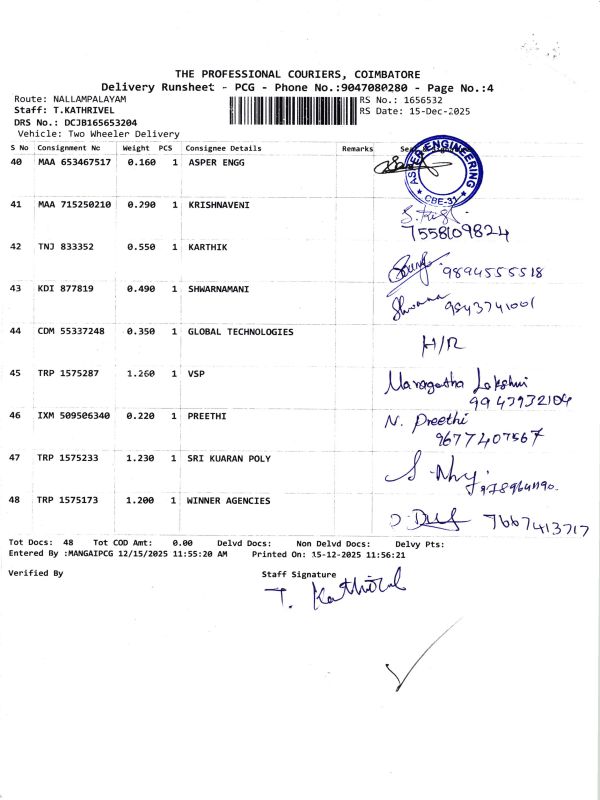 THE PROFESSIONAL COURIERS, COIMBATORE
Delivery Runsheet - PCG - Phone No.:9047080280 - Page No.:4
Route: NALLAMPALAYAM RS No.: 1656532
Staff: T.KATHRIVEL RS Date: 15-Dec-2025
DRS No.: DCJB165653204
Vehicle: Two Wheeler Delivery
S No Consignment No Weight PCS Consignee Details Remarks
40 MAA 653467517 0.160 1 ASPER ENGG
ASPER ENGINEERING
★ CBE-31 ★
41 MAA 715250210 0.290 1 KRISHNAVENI
7558109824
42 TNJ 833352 0.550 1 KARTHIK
9894555518
43 KDI 877819 0.490 1 SHWARNAMANI
Shwarna 9543741001
44 CDM 55337248 0.350 1 GLOBAL TECHNOLOGIES
H/R
45 TRP 1575287 1.260 1 VSP
Maragatha Lakshmi
9943932104
46 IXM 509506340 0.220 1 PREETHI
N. Preethi
9677407567
47 TRP 1575233 1.230 1 SRI KUARAN POLY
48 TRP 1575173 1.200 1 WINNER AGENCIES
7667413717
Tot Docs: 48 Tot COD Amt: 0.00 Delvd Docs: Non Delvd Docs: Delvy Pts:
Entered By :MANGAIPCG 12/15/2025 11:55:20 AM Printed On: 15-12-2025 11:56:21
Verified By Staff Signature
T. Kathiravel